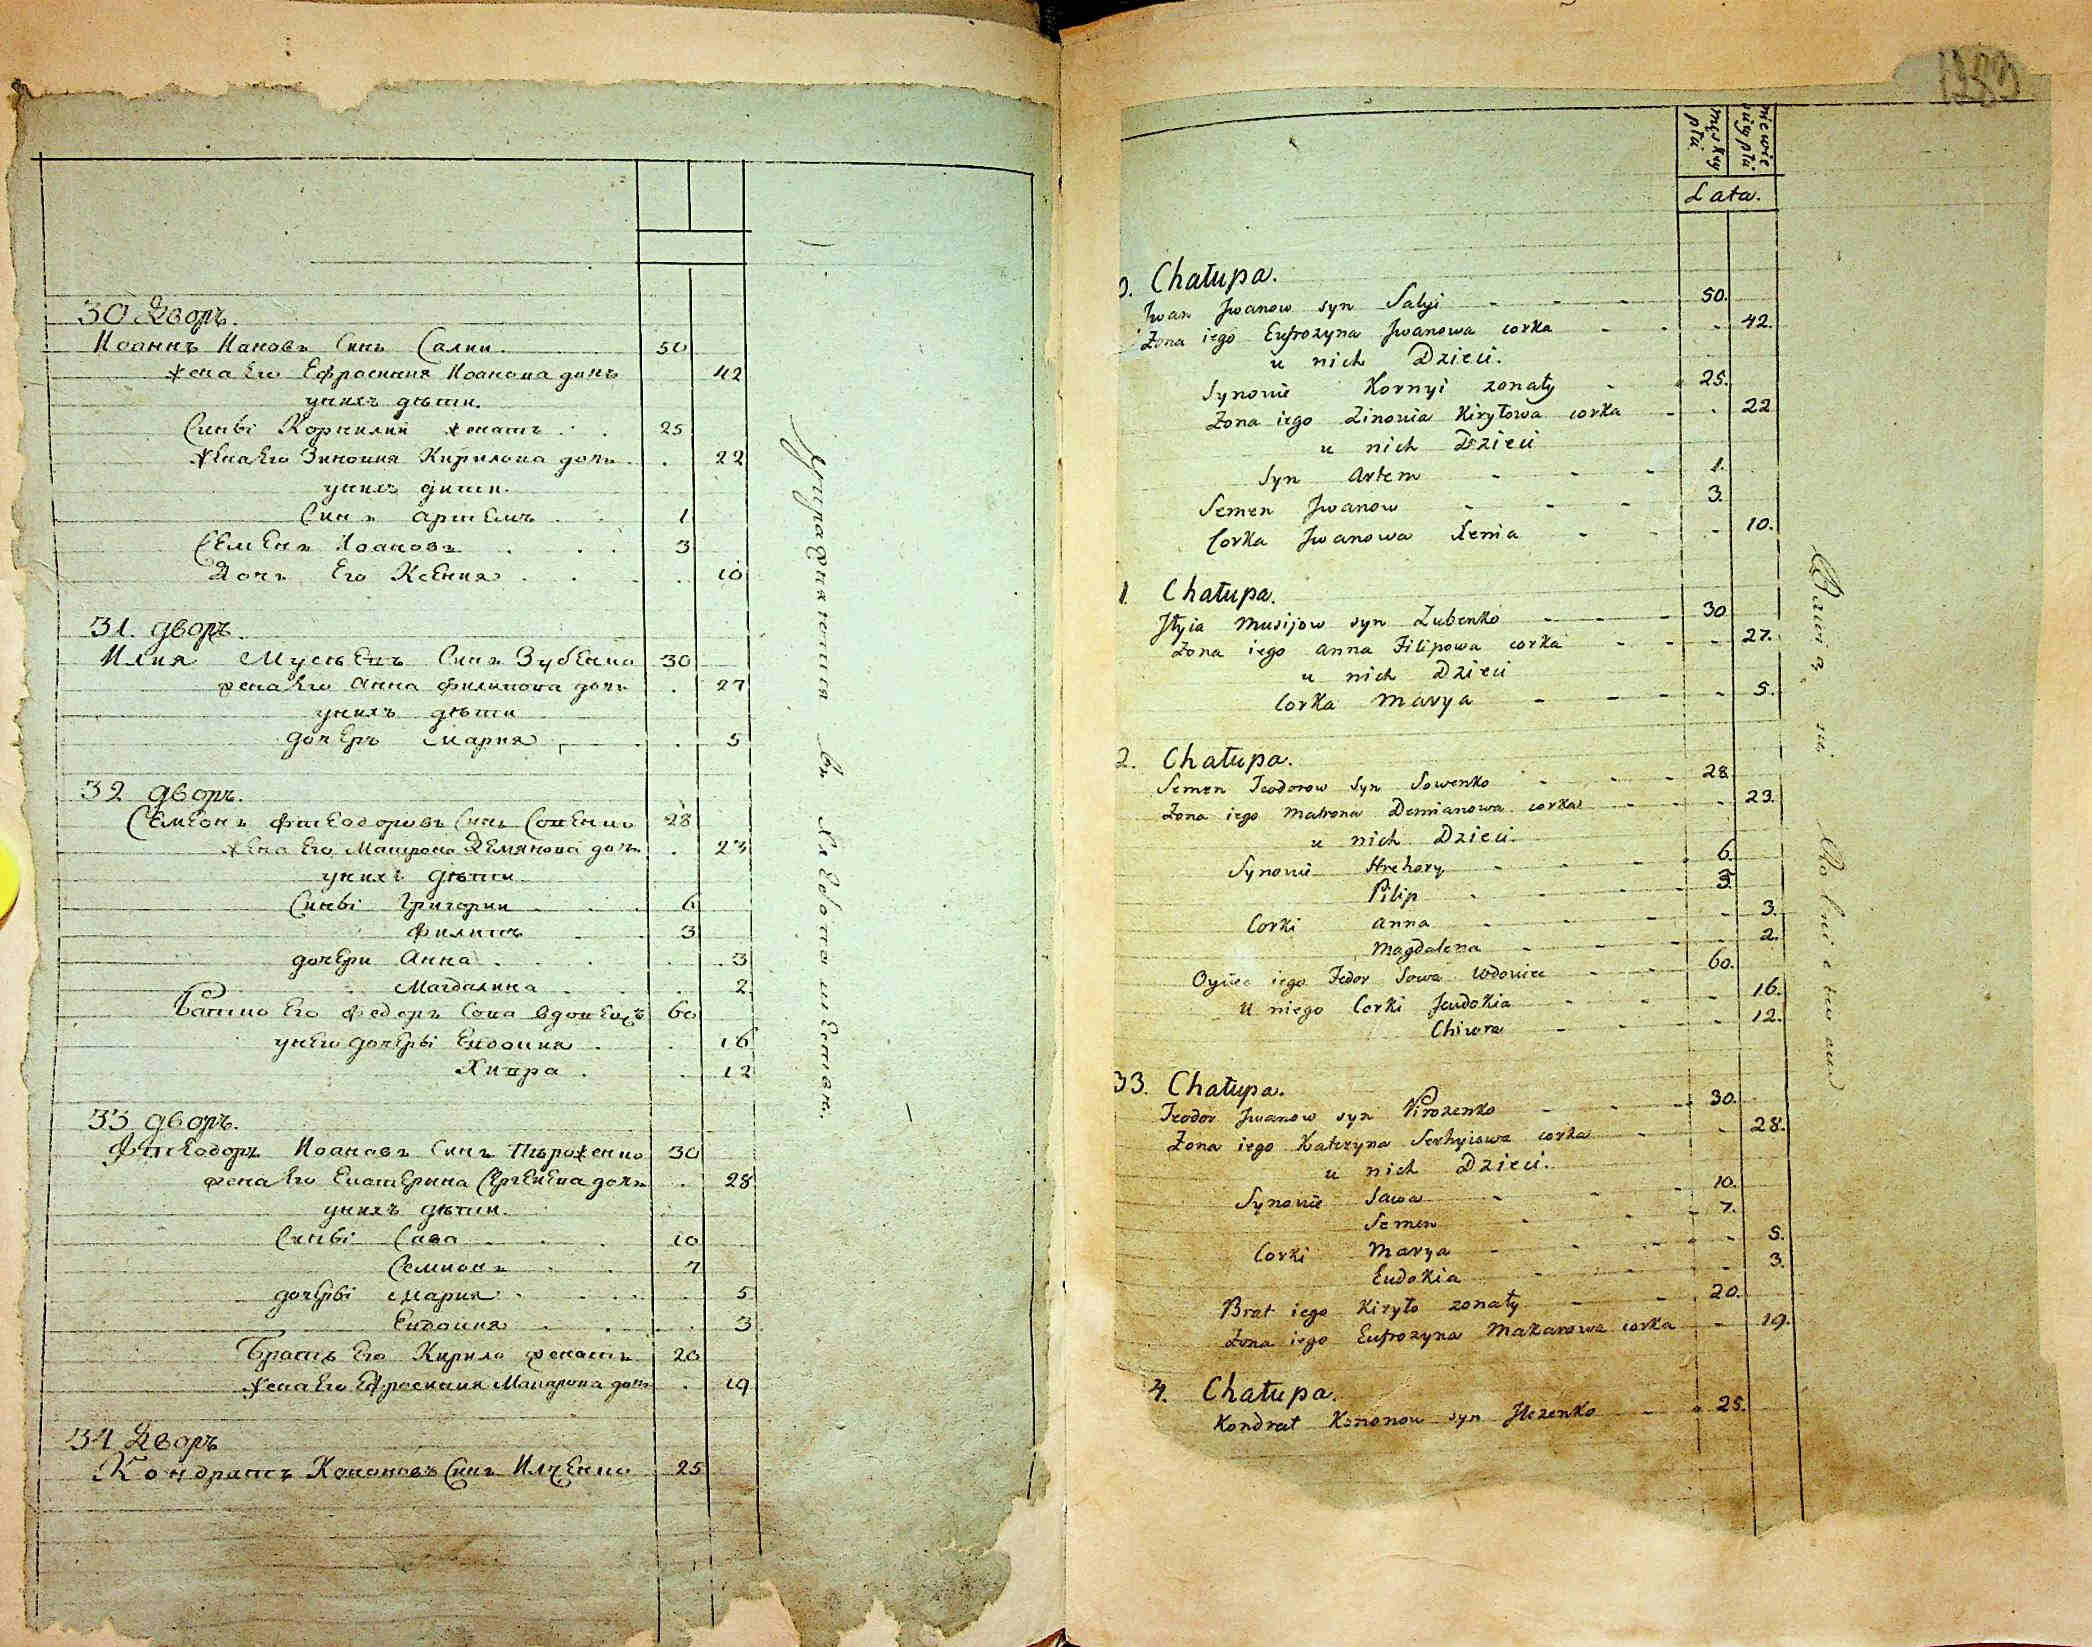 30 Дворъ.
Иоаннъ Иановъ Синъ Салии 50
жена Его Ефросиния Иоанова дочь 42
унихъ дѣти.
Синві Корнилий женатъ 25
жена Его Зиновия Кирилова дочь 22
унихъ дити.
Синъ Артемъ 1
Семенъ Іоановъ 3
Дочь Его Ксения 10
31. дворъ.
Илия Мусѣевъ Синъ Зубенко 30
жена Его Анна Филипова дочь 27
унихъ дѣти
дочеръ Мария 5
32 дворъ.
Семеонъ Фтеодоровъ Синъ Совенко 28
жена Его Матрона Демянова дочь 23
унихъ дѣти
Синві Григории 6
Филипъ 3
дочери Анна 3
Магдалина 2
Батко Его Федоръ Сова вдовецъ 60
унего дочерві Евдокия 16
Хивра 12
33 дворъ.
Фтеодоръ Иоановъ Синъ Пѣроженко 30
жена Его Екатерина Сергѣева дочь 28
унихъ дѣти.
Синві Сава 10
Семионъ 7
дочерві Мария 5
Евдокия 3
Братъ Его Кирило женатъ 20
жена Его Ефросиния Макарова дочь 19
34 Дворъ
Кондратъ Канановъ Синъ Илченко 25
Упражняются въ Хлебопашествѣ.
męskiy płci.
niewieściy płci
Lata.
0. Chałupa.
Iwan Iwanow syn Salyi 50.
Żona iego Eufrozyna Iwanowa corka 42.
u nich Dzieci.
Synowie Kornyi zonaty 25.
Żona iego Zinowia Kiryłowa corka 22
u nich Dzieci
Syn Artem 1.
Semen Iwanow 3.
Corka Iwanowa Xenia 10.
1. Chałupa.
Iłyia Musijow syn Zubenko 30
Żona iego Anna Filipowa corka 27.
u nich Dzieci
Corka Marya 5.
2. Chałupa.
Semen Teodorow syn Sowenko 28
Żona iego Matrona Demianowa corka 23.
u nich Dzieci.
Synowie Hrehory 6.
Pilip 3.
Corki Anna 3.
Magdalena 2.
Oyciec iego Fedor Sowa Wdowiec 60.
U niego Corki Jewdokia 16.
Chiwra 12.
33. Chałupa.
Teodor Iwanow syn Pirozenko 30.
Żona iego Katerzyna Serhyiowa corka 28.
u nich Dzieci.
Synowie Sawa 10.
Semen 7.
Corki Marya 5.
Eudokia 3.
Brat iego Kiryło zonaty 20.
Żona iego Eufrozyna Makarowa corka 19.
4. Chałupa.
Kondrat Kononow syn Ilczenko 25.
Bawią się Rolnictwem